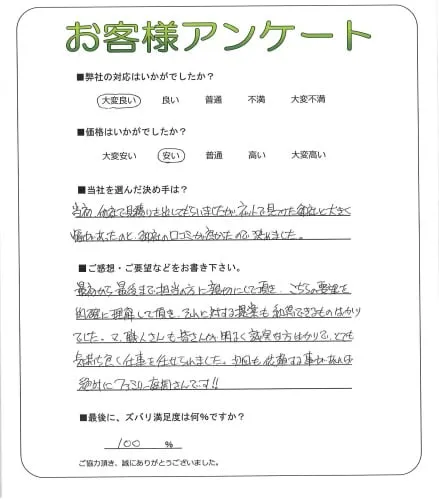 お客様アンケート
■弊社の対応はいかがでしたか？
大変良い 良い 普通 不満 大変不満
■価格はいかがでしたか？
大変安い 安い 普通 高い 大変高い
■当社を選んだ決め手は？
当初、他社で見積り出してもらいましたが、ネットで見つけた御社と大きく
幅があったのと、御社の口コミが良かったので決めました。
■ご感想・ご要望などをお書き下さい。
最初から最後まで担当の方に親切にして頂き、こちらの要望を
的確に理解して頂き、それに対する提案も納得できるものばかり
でした。又、職人さんも皆さんが明るく誠実な方ばかりで、とても
気持ち良く仕事を任せられました。次回も依頼する事があれば
絶対にファミリー庭園さんです!!
■最後に、ズバリ満足度は何%ですか？
100 %
ご協力頂き、誠にありがとうございました。